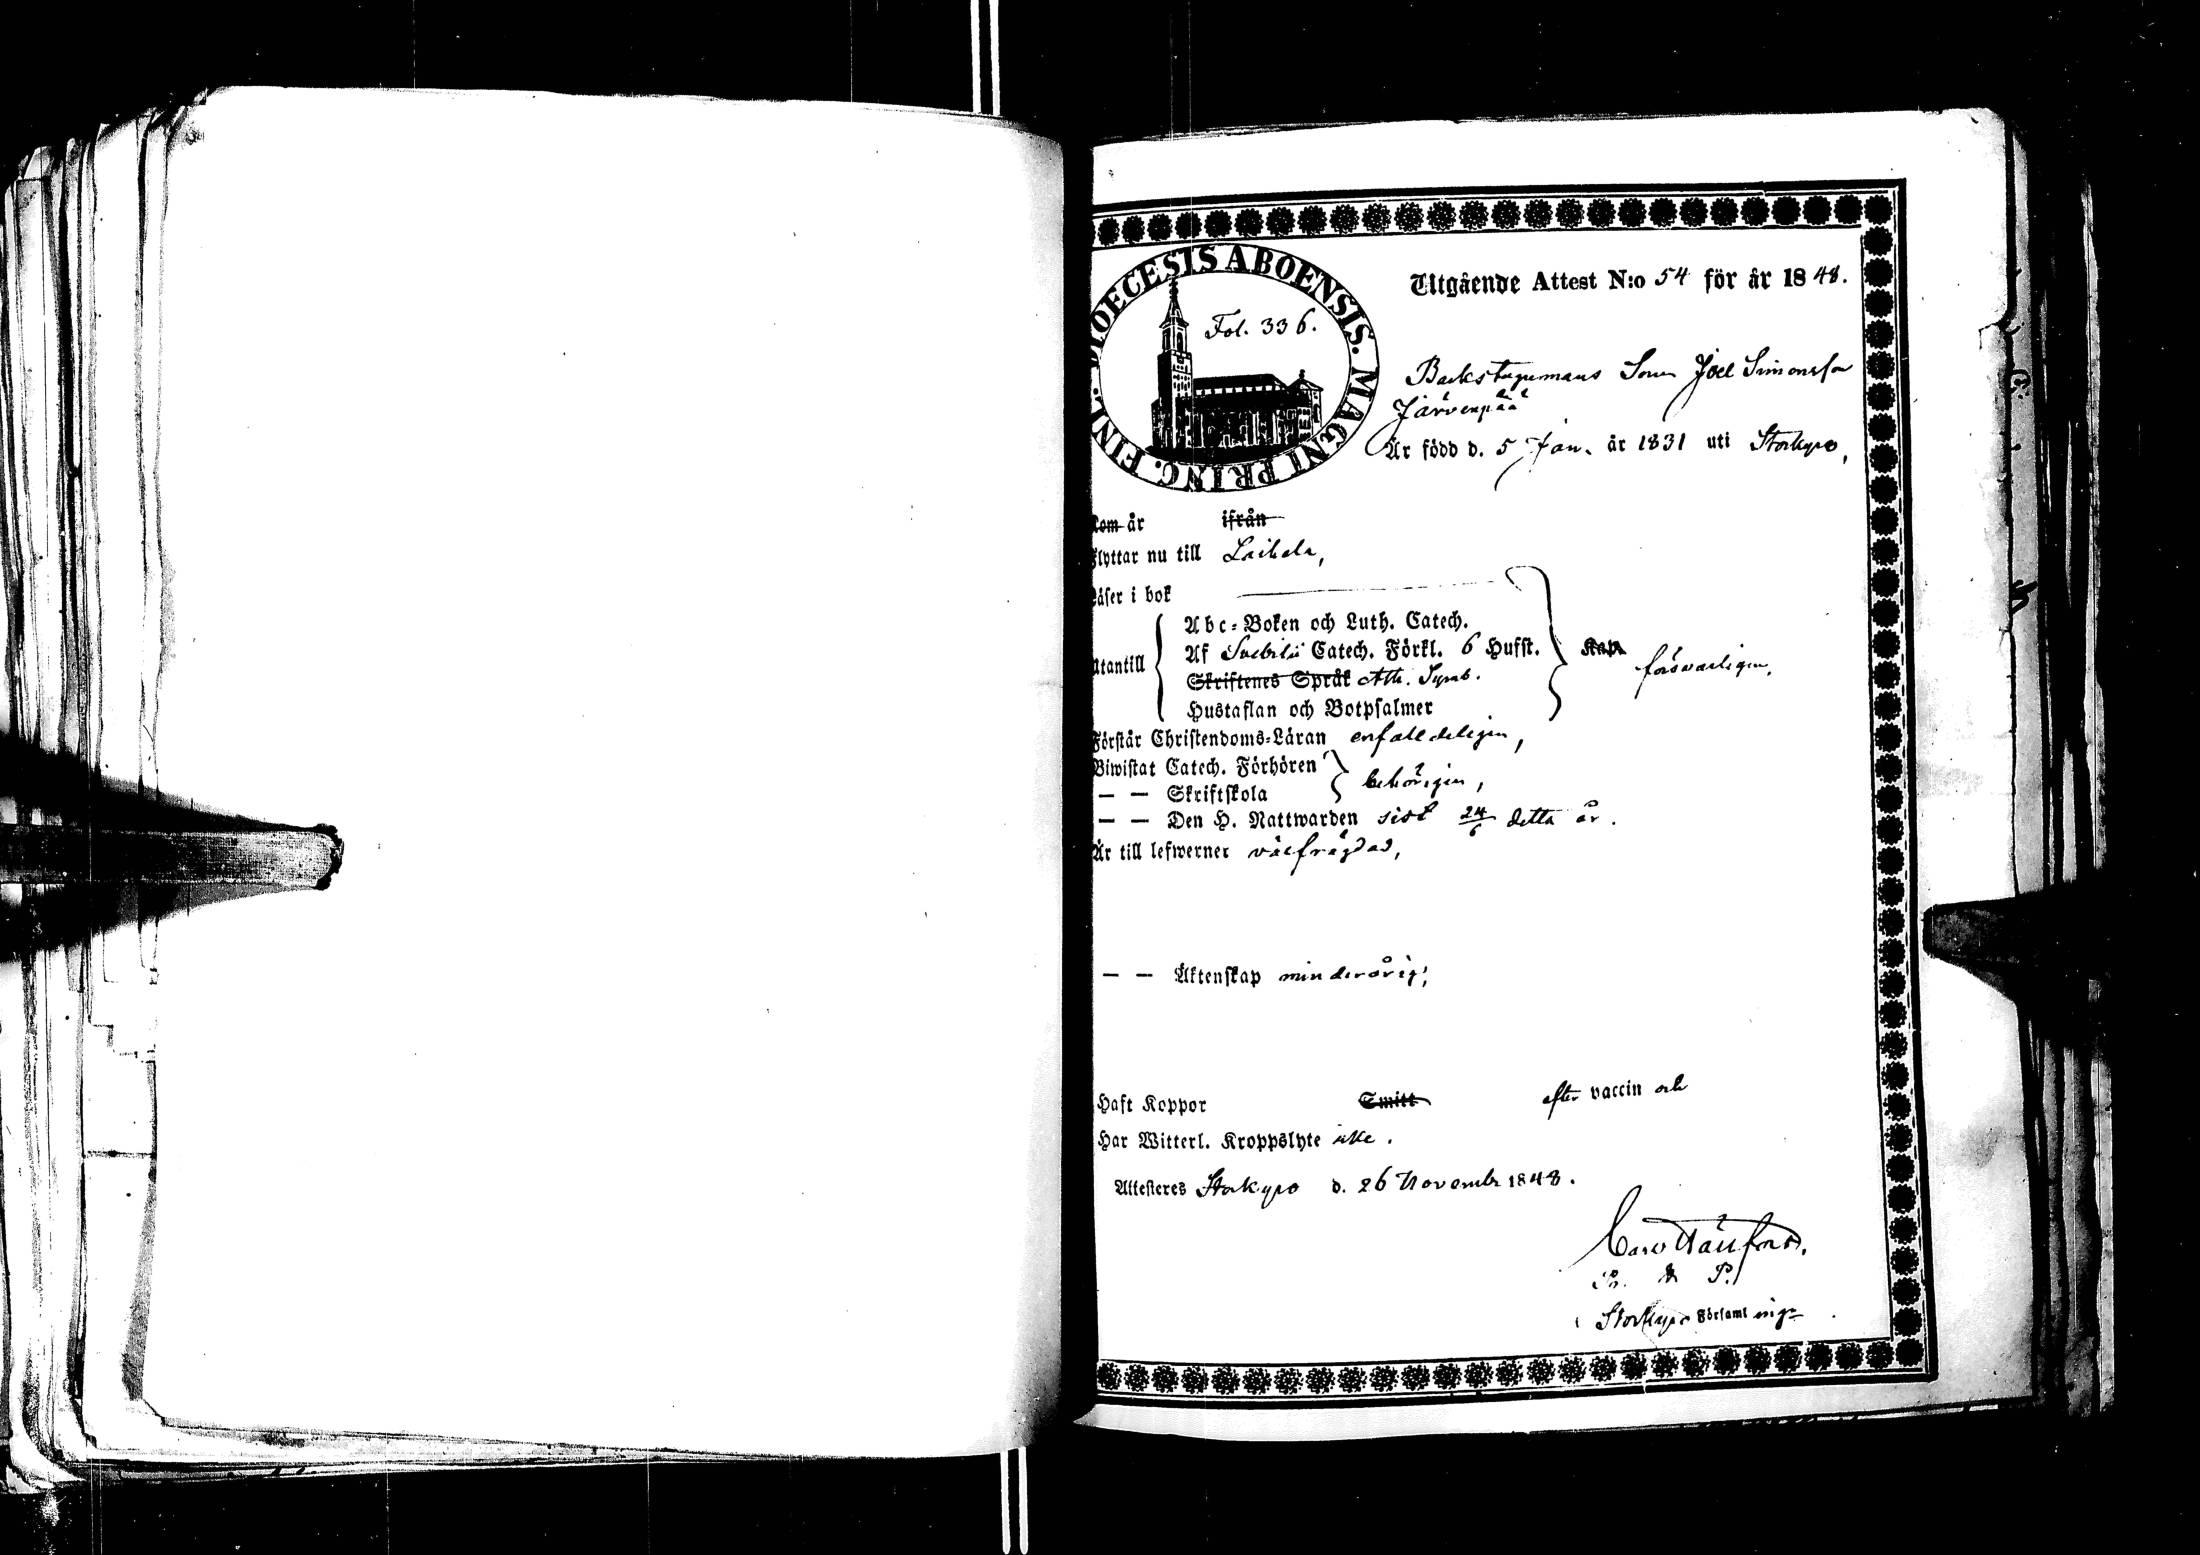 DIOECESIS ABOENSIS. MAGNI PRINC. FINL.
Fol. 336.
Utgående Attest N:o 54 för år 1848.
Backstugumans Son Joel Simonsson
Järvenpää
Är född d. 5 Jan. år 1831 uti Storkyro,
Kom år ifrån
Flyttar nu till Laihela,
Läser i bok
Utantill
Abc-Boken och Luth. Catech.
Af Svebilii Catech. Förkl. 6 Hufst. Kap. försvarligen,
Skriftenes Språk Ath. Symb.
Hustaflan och Botpsalmer
Förstår Christendoms-Läran enfalldeligen,
Biwistat Catech. Förhören
behörigen,
— — Skriftskola
— — Den H. Nattwarden sist 24/6 detta år.
Är till lefwernet välfrägdad,
— — Äktenskap minderårig;
Haft Koppor Smitt efter vaccin och
Har Witterl. Kroppslyte icke.
Attesteres Storkyro d. 26 November 1848.
Storkyro Församlings